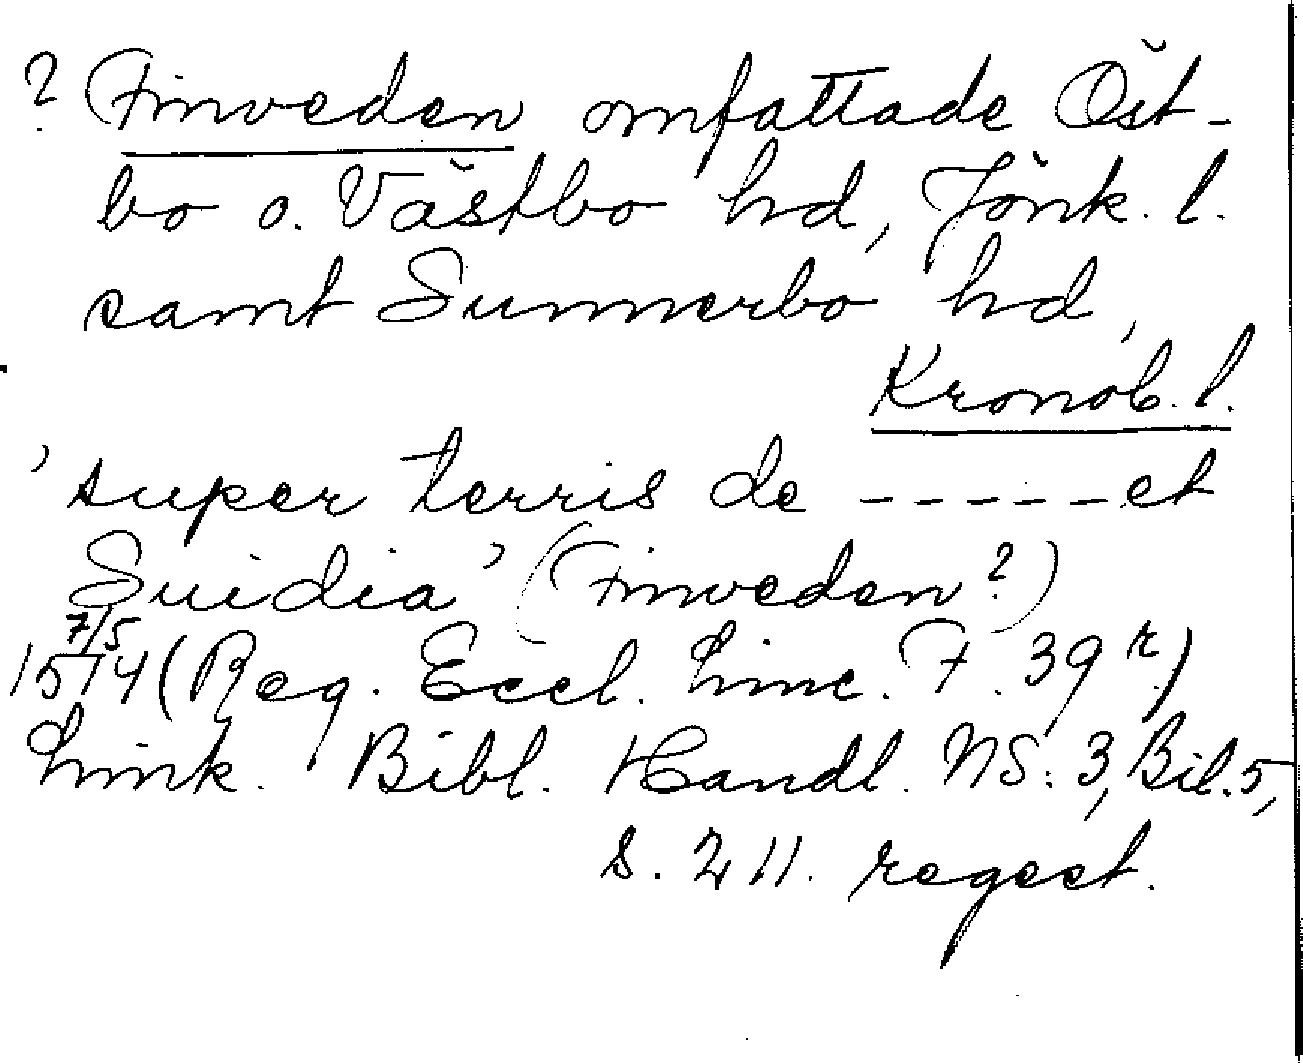 ? Finveden omfattade Öst-
bo o. Västbo hd, Jönk. l.
samt Sunnerbo hd,
Kronob. l.
'super terris de ----- et
Suidia' (Finveden?)
7/5
1514 (Reg. Eccl. Linc. F. 39 r)
Link. Bibl. Handl. NS: 3, Bil. 5,
s. 211. regest.